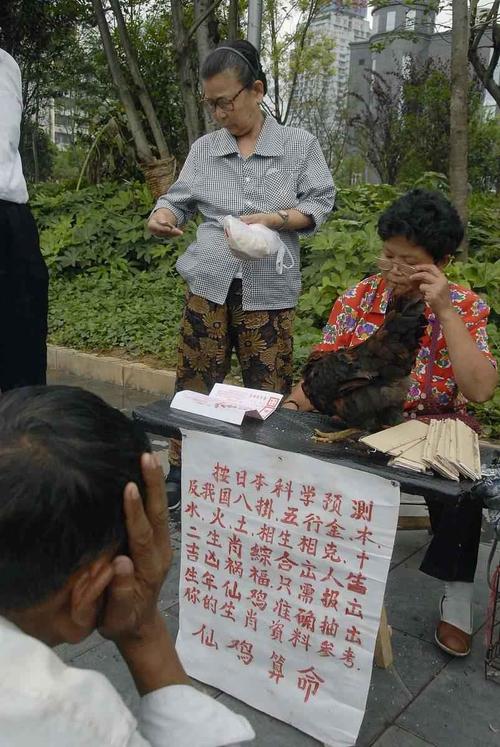 按日本科学预测
及我国八掛.五行金.木.
水.火.土.相生相克.十
二生肖綜合出人生
吉凶祸福.只需报出
生年仙鸡准确抽出
你的生肖資料参考.
仙鸡算命